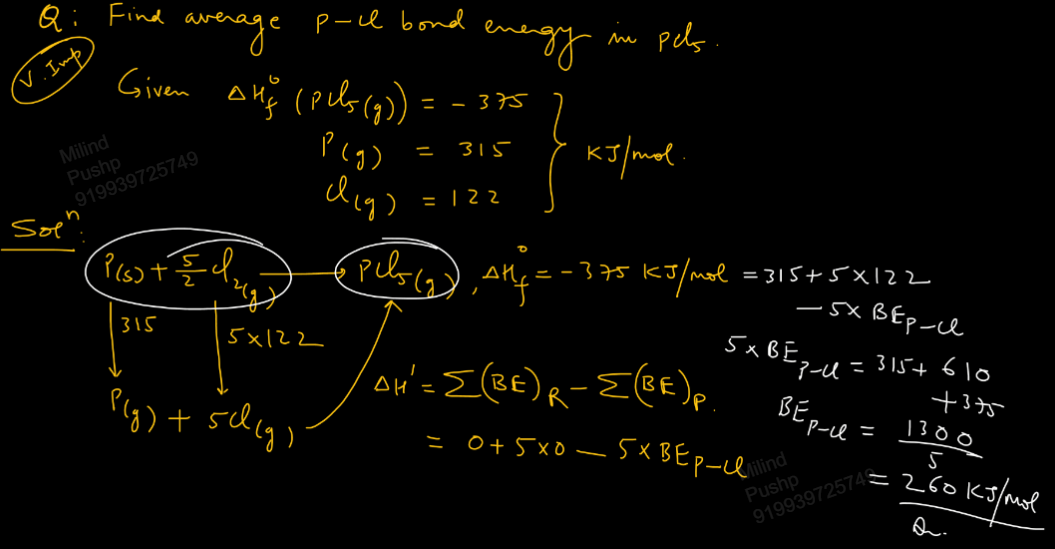 Q: Find average P-Cl bond energy in PCl5.
V. Imp
Given ΔHf° (PCl5(g)) = - 375
P(g) = 315
Cl(g) = 122
KJ/mol.
Milind
Pushp
919939725749
Soln:
P(s) + 5/2 Cl2(g) → PCl5(g), ΔHf° = - 375 KJ/mol = 315 + 5 x 122
- 5 x BE P-Cl
315
5x122
P(g) + 5Cl(g)
ΔH' = Σ(BE)R - Σ(BE)P.
= 0 + 5x0 - 5 x BE P-Cl
5 x BE P-Cl = 315 + 610
+ 375
BE P-Cl = 1300/5
= 260 KJ/mol
Milind
Pushp
919939725749